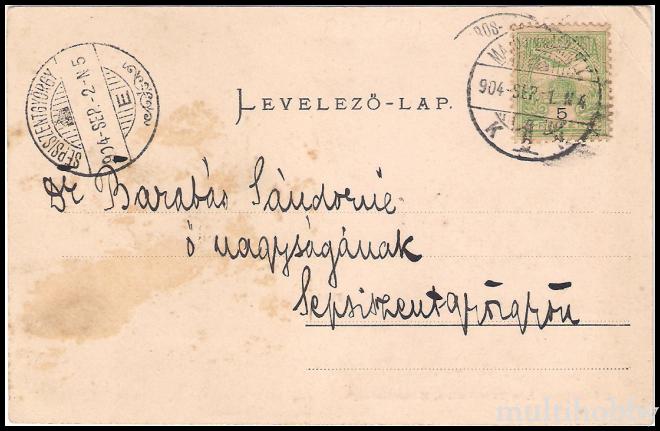 SEPSISZENTGYÖRGY
904-SEP.-2-N5
E
904-SEP.-1.N4
K
5
LEVELEZŐ-LAP.
Dr Barabás Sándorné
ő nagyságának
Sepsiszentgyörgyön
multihobby